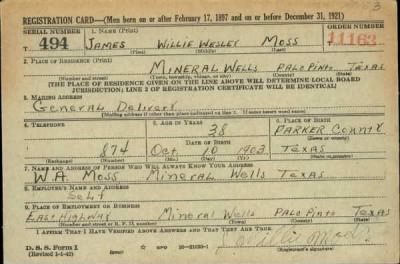 REGISTRATION CARD—(Men born on or after February 17, 1897 and on or before December 31, 1921)
SERIAL NUMBER 1. NAME (Print) ORDER NUMBER
T 494 JAMES WILLIE WESLEY MOSS 11163
(First) (Middle) (Last)
2. PLACE OF RESIDENCE (Print)
MINERAL WELLS PALO PINTO TEXAS
(Number and street) (Town, township, village, or city) (County) (State)
[THE PLACE OF RESIDENCE GIVEN ON THE LINE ABOVE WILL DETERMINE LOCAL BOARD
JURISDICTION; LINE 2 OF REGISTRATION CERTIFICATE WILL BE IDENTICAL]
3. MAILING ADDRESS
General Delivery
[Mailing address if other than place indicated on line 2. If same insert word same]
4. TELEPHONE 5. AGE IN YEARS 6. PLACE OF BIRTH
38 PARKER COUNTY
DATE OF BIRTH (Town or county)
874 Oct 10 1903 TEXAS
(Exchange) (Number) (Mo.) (Day) (Yr.) (State or country)
7. NAME AND ADDRESS OF PERSON WHO WILL ALWAYS KNOW YOUR ADDRESS
W.A. Moss Mineral Wells Texas
8. EMPLOYER'S NAME AND ADDRESS
Self
9. PLACE OF EMPLOYMENT OR BUSINESS
EAST Highway Mineral Wells PALO PINTO TEXAS
(Number and street or R. F. D. number) (Town) (County) (State)
I AFFIRM THAT I HAVE VERIFIED ABOVE ANSWERS AND THAT THEY ARE TRUE.
D. S. S. Form 1
(Revised 1-1-42) GPO 16—21630-1